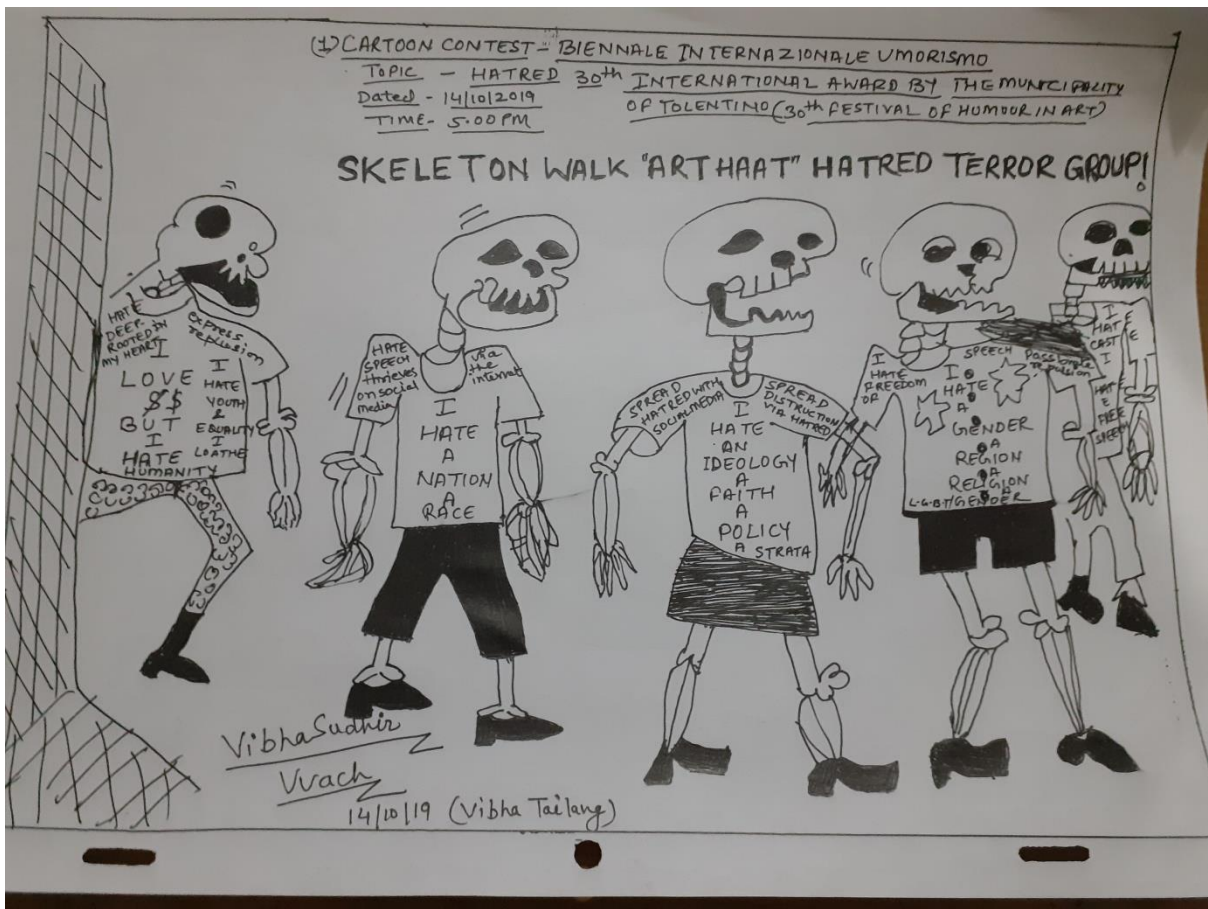 (1) CARTOON CONTEST - BIENNALE INTERNAZIONALE UMORISMO
TOPIC - HATRED 30th INTERNATIONAL AWARD BY THE MUNICIPALITY
Dated - 14/10/2019 OF TOLENTINO (30th FESTIVAL OF HUMOUR IN ART)
TIME - 5.00 PM
SKELETON WALK "ART HAAT" HATRED TERROR GROUP!
HATE
DEEP-
ROOTED IN
MY HEART
express
repulsion
I
LOVE
$$
BUT
I
HATE
HUMANITY
I
HATE
YOUTH
&
EQUALITY
I
LOATHE
HATE
SPEECH
thrieves
on social
media
via
the
internet
I
HATE
A
NATION
A
RACE
SPREAD
HATRED WITH
SOCIAL MEDIA
SPREAD
DISTRUCTION
VIA HATRED
I
HATE
AN
IDEOLOGY
A
FAITH
A
POLICY
A STRATA
I
HATE
FREEDOM
OF
SPEECH
I
HATE
A
GENDER
A
REGION
A
RELIGION
A
L.G.B.T/GENDER
Passionate
repulsion
I
HATE
CAST
I
HATE
FREE
SPEECH
Vibha Sudhir
Vvach
14/10/19 (Vibha Tailang)